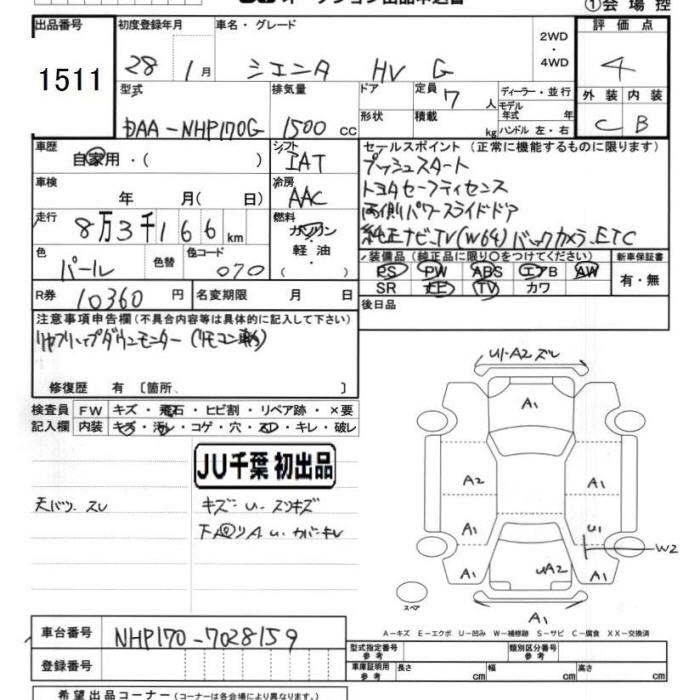 ①会場控
出品番号
1511
初度登録年月
28 1月
車名・グレード
シエンタ HV G
2WD
・
4WD
評価点
4
外装 内装
C B
型式
DAA-NHP170G
排気量
1500 cc
ドア
形状
定員
7 人
積載
kg
ディーラー・並行
モデル
年式 年
ハンドル 左・右
車歴
自家用・( )
シフト
IAT
セールスポイント (正常に機能するものに限ります)
プッシュスタート
トヨタセーフティセンス
両側パワースライドドア
純正ナビ.TV(W64) バックカメラ.ETC
車検
年 月( 日)
冷房
AAC
走行
8万3千166 km
燃料
ガソリン
・
軽油
・
色
パール
色替
色コード
070
装備品 (純正品に限り○をつけてください)
PS PW ABS エアB AW
SR ナビ TV カワ
新車保証書
有・無
R券
10360 円
名変期限 月 日
後日品
注意事項申告欄 (不具合内容等は具体的に記入して下さい)
リヤフリップダウンモニター (リモコン
修復歴 有 〔箇所、 〕
検査員
記入欄
FW キズ・飛石・ヒビ割・リペア跡・×要
内装 キズ・汚レ・コゲ・穴・スレ・キレ・破レ
JU千葉 初出品
キズ・U・スリキズ
U1・A2 ズレ
A1
A2
A1
A1
U1
W2
A1
UA2
A1
A1
スペア
A-キズ E-エクボ U-凹み W-補修跡 S-サビ C-腐食 XX-交換済
車台番号
NHP170-7028159
登録番号
型式指定番号
参考
類別区分番号
参考
車庫証明用
参考
長さ cm
幅 cm
高さ cm
希望出品コーナー (コーナーは各会場により異なります。)